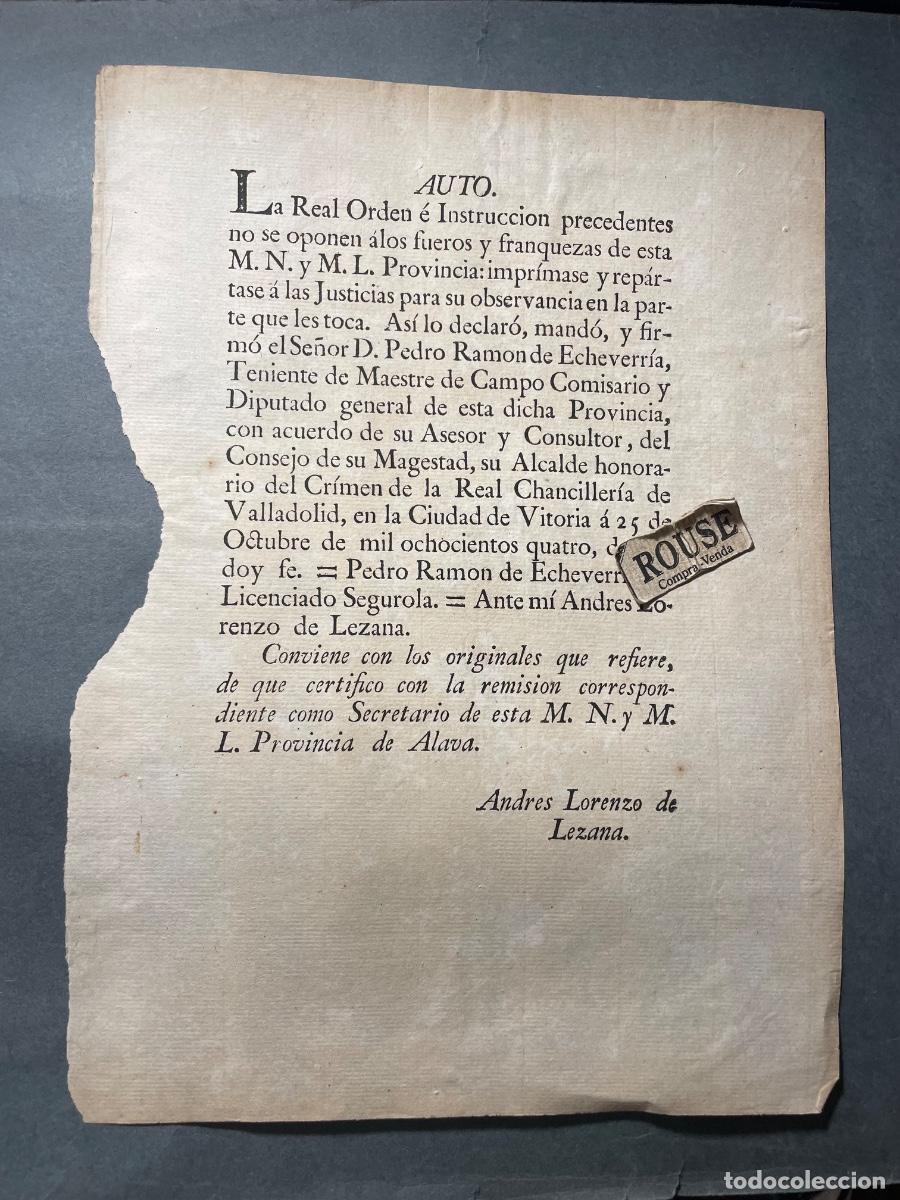 AUTO.
La Real Orden é Instruccion precedentes
no se oponen álos fueros y franquezas de esta
M. N. y M. L. Provincia: imprímase y repár-
tase á las Justicias para su observancia en la par-
te que les toca. Así lo declaró, mandó, y fir-
mó el Señor D. Pedro Ramon de Echeverría,
Teniente de Maestre de Campo Comisario y
Diputado general de esta dicha Provincia,
con acuerdo de su Asesor y Consultor, del
Consejo de su Magestad, su Alcalde honora-
rio del Crímen de la Real Chancillería de
Valladolid, en la Ciudad de Vitoria á 25 de
Octubre de mil ochocientos quatro,
doy fe. = Pedro Ramon de
Licenciado Segurola. = Ante mí Andres Lo-
renzo de Lezana.
Conviene con los originales que refiere,
de que certifico con la remision correspon-
diente como Secretario de esta M. N. y M.
L. Provincia de Alava.
Andres Lorenzo de
Lezana.
ROUSE
Compra-Venda
todocoleccion